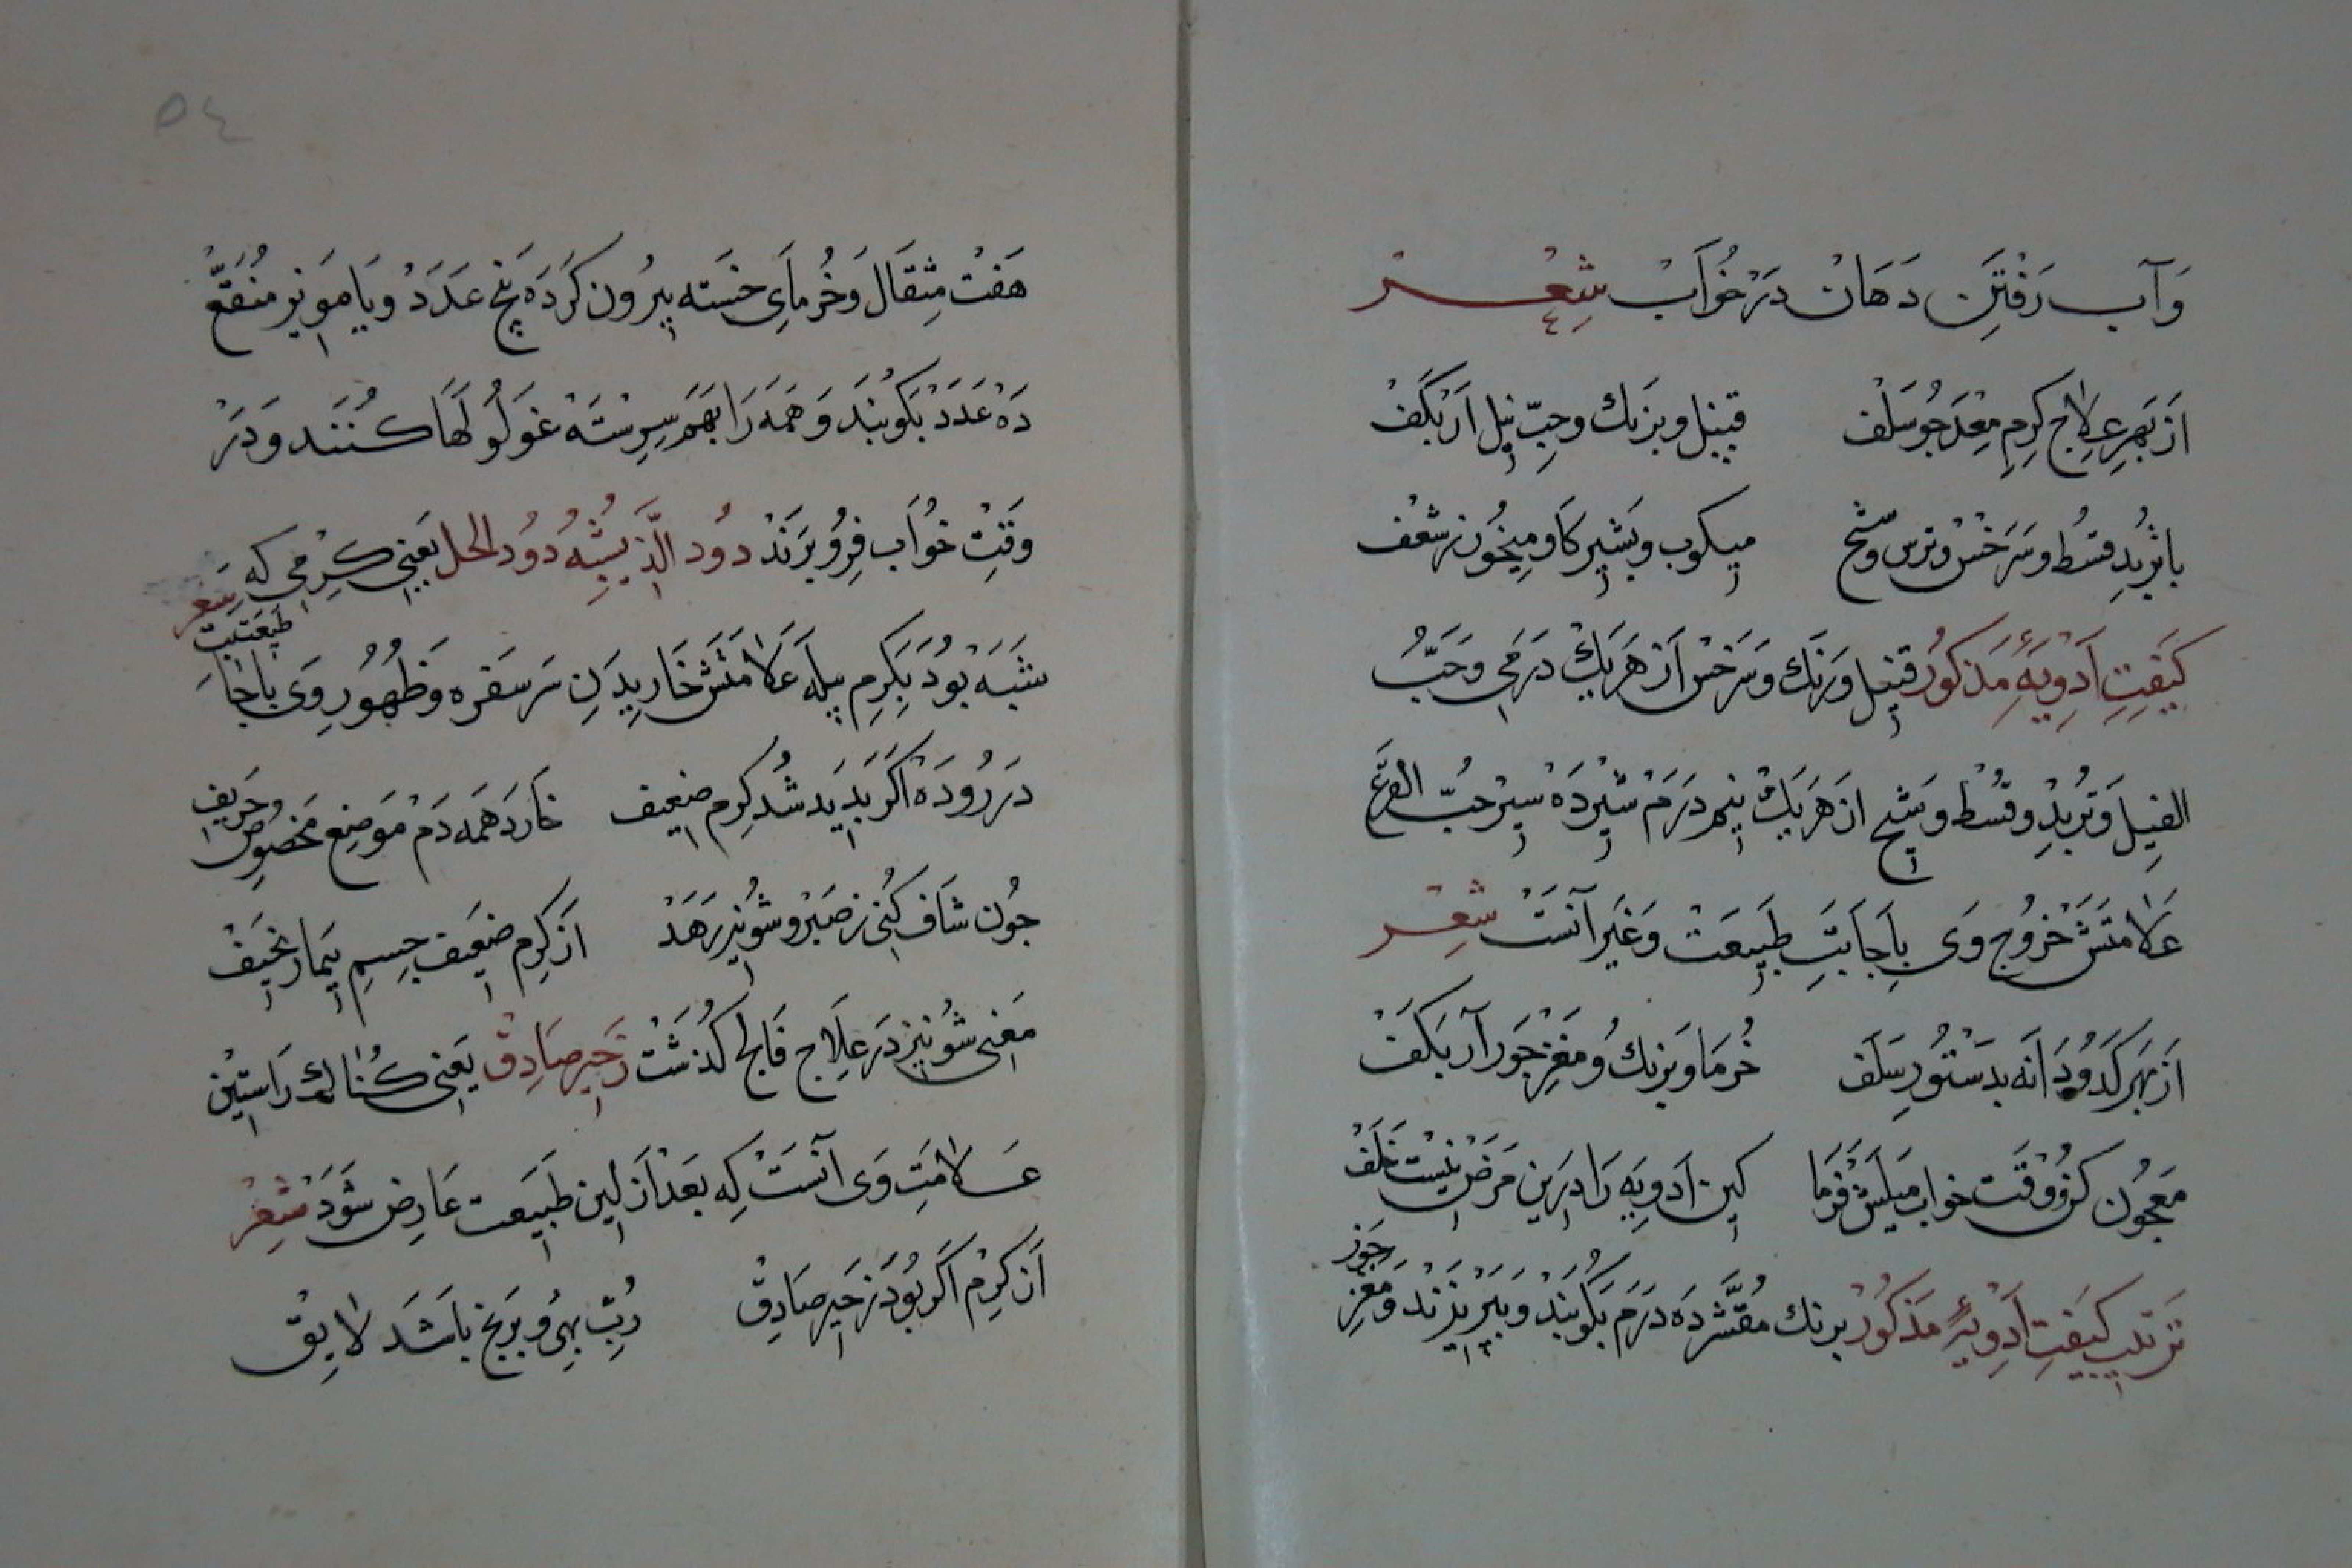 وَآب رَفْتَنِ دَهَانْ دَرْ خُوَابْ شِعْر
اَز بَهرِ عِلاج كِرمِ مِعْدَه جُو سَلَفْ قنبيل و برنك و حبّ نيل آرْ بَكَفْ
با تُربِد و قسْط و سَرَخْس و ترس و شيح ميكوب و بشير كاو ميخُور ز شعف
كَيْفيتِ اَدْوِيَهٔ مَذكُورْ قنبيل و برنك و سَرَخس اَز هَر يَكْ دَرَمى و حَبُّ
الفيل و تُربِدْ و قُسْط و شيح از هَر يَكْ نيم دَرَمْ شير دَهْ سير حبُّ القرع
عَلامَتَشْ خرُوجِ وَى بِاِجَابَتِ طَبِيعَتْ وَغَيرِ آنَسْتْ شِعْر
اَز بَهر كَدُودَانَه بدَسْتُورِ سَلَفْ خُرمَا و برنك و مَغْزِ جَوز آر بَكَفْ
معجُون كن و وَقْت خواب ميلش فَرْما كين اَدويَه رَا دَرين مَرَض نيسْت خَلَفْ
تَرتيب كَيْفيتِ اَدْوِيَهٔ مَذكُورْ برنك مُقَشَّر دَه دَرَم بكُوبَنْدْ و ببيزَنْد و مَغْزِ جَوز
٥٤
هَفْتْ مِثقَال وَخُرماىِ خَسته بيرُون كَردَه پَنج عَدَدْ وَ يَا مَويز مُنَقّعْ
دَهْ عَدَدْ بكُوبَنْد وَهَمَه رَا بَهَم سِرِشتَهْ غولُولَهَا كُنَنَد وَدَرْ
وَقتِ خُوَاب فِرُو بَرَنْدْ دود الّذى يُشبِهُ دُودُ الخل يَعنى كِرْمى كه شعر
شَبيهْ بُودْ بَكِرمِ پيله عَلامَتَشْ خَاريدَنِ سَر سَفره وَظُهُورِ وَى بِاِجَابَت طَبيعَت
دَر رُودَهْ اَكَر پَديد شُد كِرم ضعيف خارَد هَمَه دَمْ مَوضِع مَخصُوصِ حَريف
چُون شَاف كُنى ز صَبر و شُونيز رَهَدْ از كِرم ضعيف جِسمِ بيمار نَحيفْ
مَعنى شُونيز دَر عِلاج فَالج كُذَشتْ زَحيرِ صَادِقْ يَعنى كُنَاك رَاستين
عَلامَتِ وَى آنَستْ كِه بَعْد اَز لين طَبيعت عَارِض شَوَدْ شعْر
اَز كِرم اَكَر بُوَدْ زَحيرِ صَادِقْ رُبِّ بِهى وَ بَرنج بَاشَدْ لايِقْ